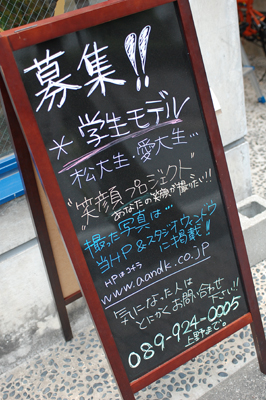 募集!!
* 学生モデル
松大生・愛大生…
"笑顔プロジェクト"
あなたの笑顔が撮りたい!!
撮った写真は…
当HP&スタジオウィンドウ
に掲載!!
HPはコチラ
www.aandk.co.jp
気になった人は
とにかくお問い合わせ
下さい!!
089-924-0005
上野まで。